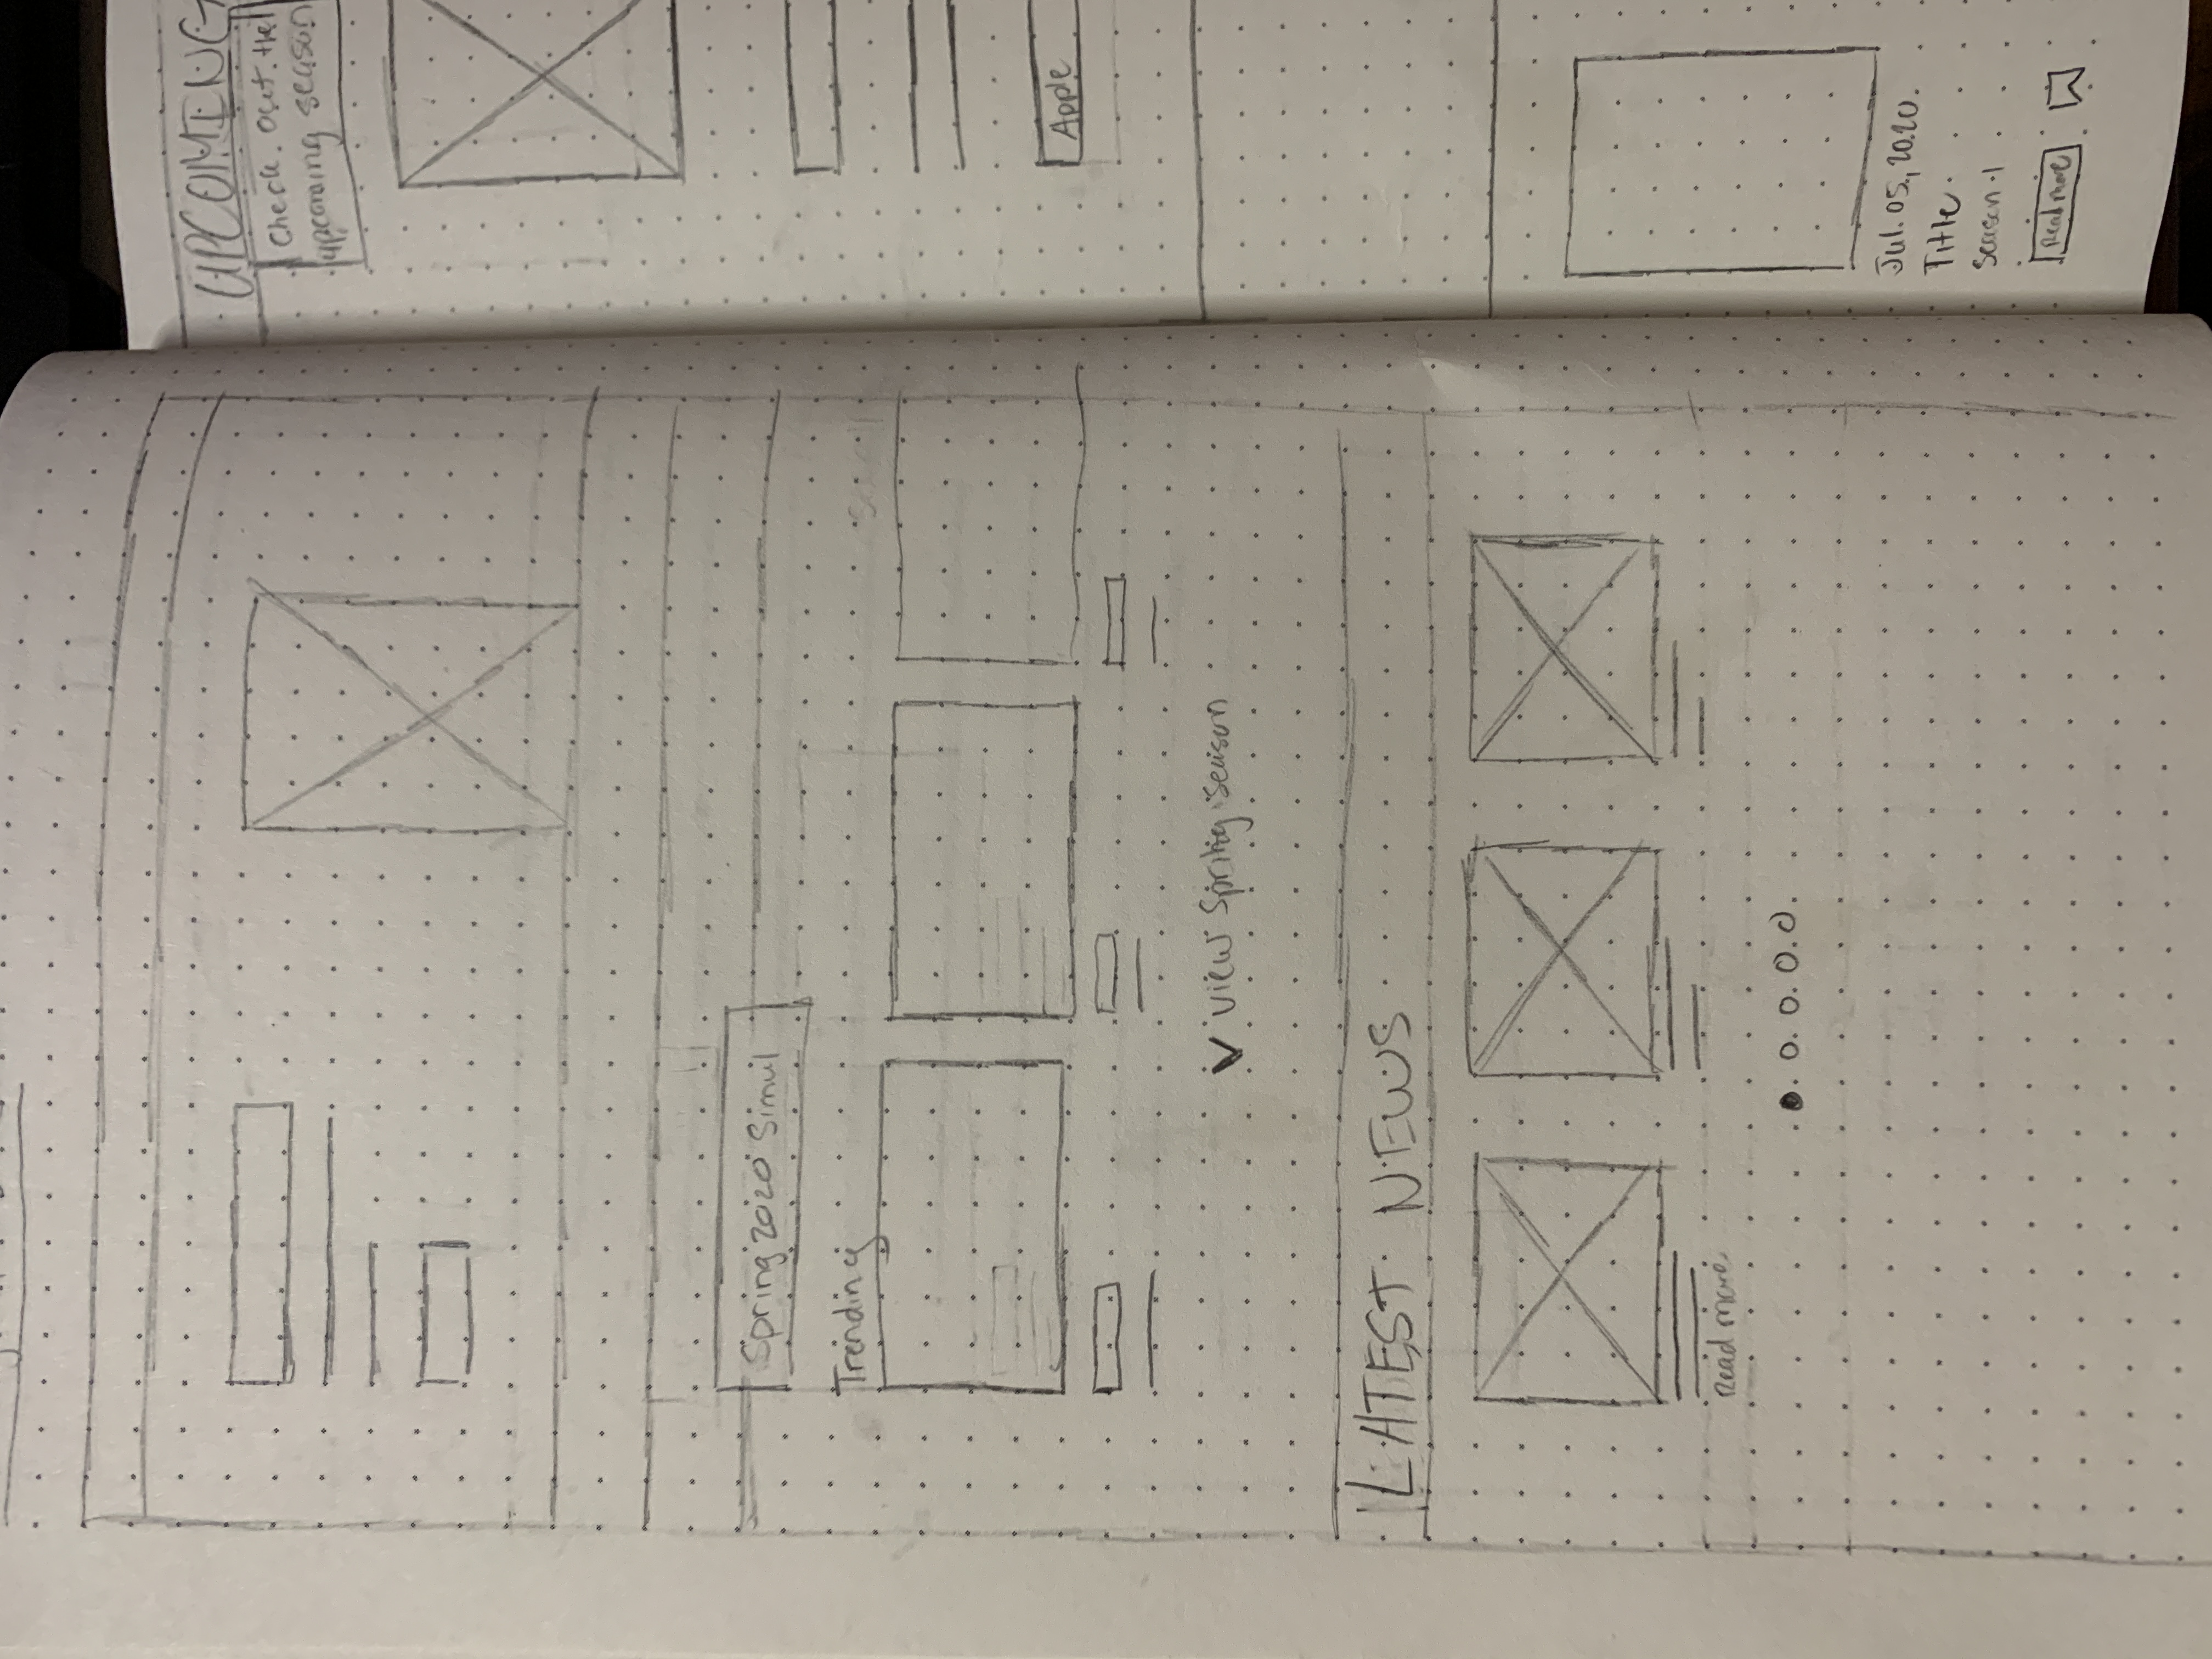 Spring 2020 Simul
Trending
V View Spring Season
LATEST NEWS
Read more
UPCOMING
Check Out the
upcoming season
Apple
Jul. 05, 2020
Title
Season 1
Read more